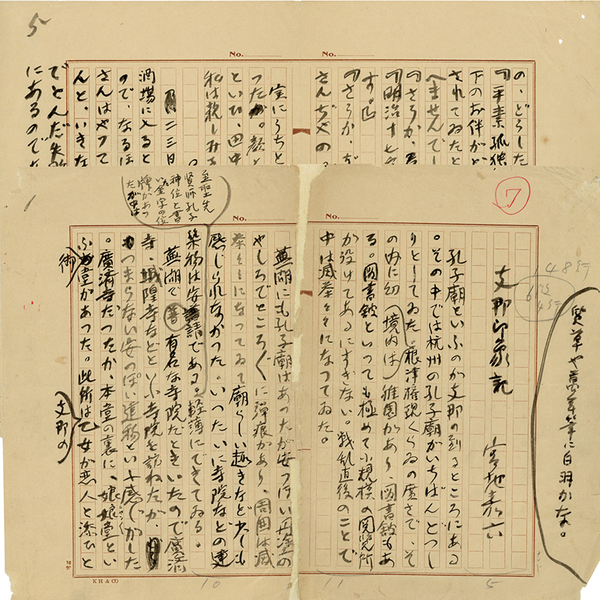 5
No.
No.
の、どうした
「平素孤独
下のお伴がと
されてゐたと
へませんでし
「さうか、
「明治十七
す。」
「さうか、ぢ
さんぢやの
実にうちと
つたが。顔と
といひ田中
私は親しみ
二三日
酒場に入ると
ので、なるほ
さんはやつて
んと、いきな
でとんだ失敗
にあるので
1
No.
No.
7
48行
支那印象記
宮地嘉六
孔子廟といふのが支那の到るところにある
。その中では杭州の孔子廟がいちばんとつし
りとしてゐた。根津権現くらゐの廣さで、そ
の中に幼(境内は)稚園があり、図書館もあ
る。図書館といつても極めて小規模の閲覧所
が設けてあるにすぎない。戦乱直後のことで
中は滅茶々々になつてゐた。
蕪湖にも孔子廟はあつたが安つぽい丹塗の
やしろでところ〲に弾痕があり、周囲は滅
茶々々になつてゐて廟らしい趣きなど少しも
感じられなかつた。いつたいに寺院などの建
築物は安普請である。軽薄にできてゐる。
至聖先
賢師孔子
神位と書
いた金字の位
牌があつ
たが中は
蕪湖で著有名な寺院だときいたので廣済
寺、城隍寺などといふ寺院を訪ねたが、
もつまらない安つぽい建物といふ感じがした
。廣済寺だつたか本堂の裏に、娘娘堂とい
ふ御堂があつた。此所は支那の乙女が恋人と添ひと
K H & Co
10
11
5